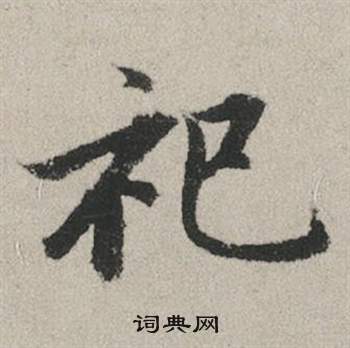 祀
词典网